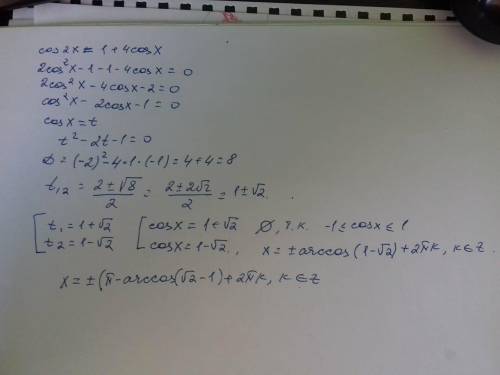 cos2x = 1 + 4cosx
2cos²x - 1 - 1 - 4cosx = 0
2cos²x - 4cosx - 2 = 0
cos²x - 2cosx - 1 = 0
cosx = t
t² - 2t - 1 = 0
D = (-2)² - 4·1·(-1) = 4 + 4 = 8
t₁,₂ = (2 ± √8)/2 = (2 ± 2√2)/2 = 1 ± √2.
[t₁ = 1 + √2 [cosx = 1 + √2 ∅, т.к. -1 ≤ cosx ≤ 1
t₂ = 1 - √2 cosx = 1 - √2., x = ± arccos(1 - √2) + 2πk, k ∈ Z.
x = ± (π - arccos(√2 - 1) + 2πk, k ∈ Z